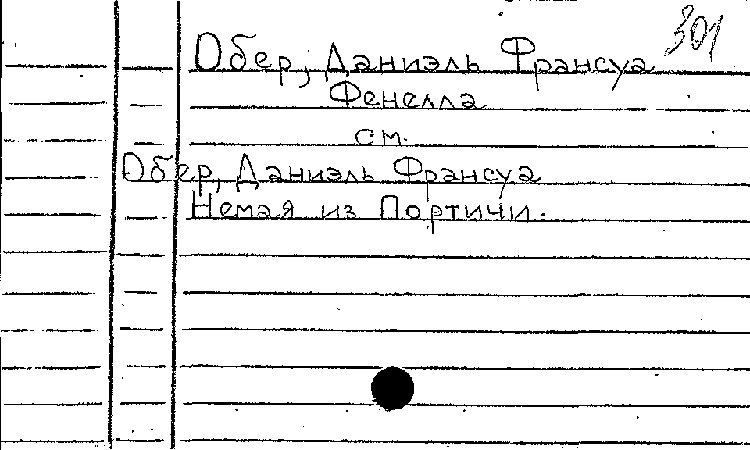 301
Обер, Даниэль Франсуа
Фенелла
см.
Обер, Даниэль Франсуа
Немая из Портичи.